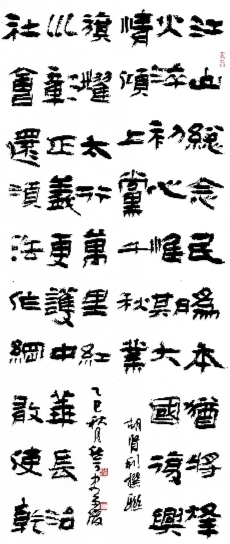 江山總念民為本猶將烽
火淬初心惟期大國復興
情頌上黨千秋業
胡貴利撰聯
社會還須法作綱敢使乾
巛彰正義更護中華長治
旗耀太行萬里紅
乙巳秋月